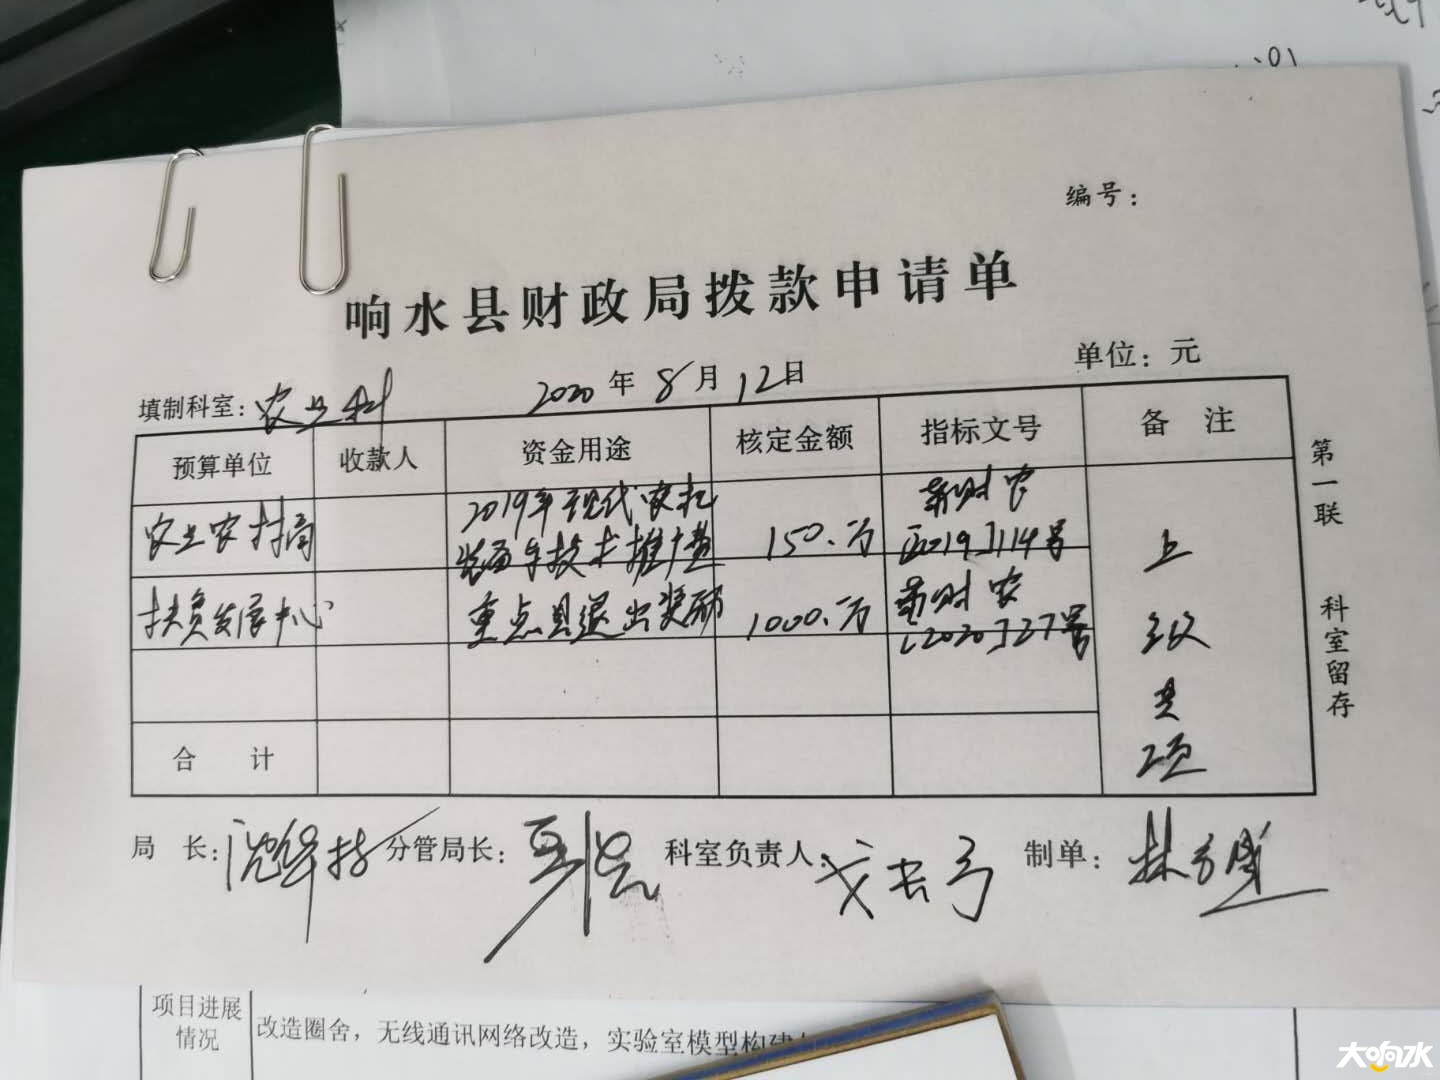 编号：
响水县财政局拨款申请单
填制科室：农业科 2020年8月12日 单位：元
预算单位 收款人 资金用途 核定金额 指标文号 备 注
农业农村局 2019年现代农机 150.万 苏财农
装备与技术推广 [2019]114号 上
扶贫发展中心 重点县退出奖励 1000.万 苏财农
[2020]27号 级
专
项
合 计
局 长： 分管局长： 科室负责人： 制单：
第一联 科室留存
项目进展
情况
改造圈舍，无线通讯网络改造，实验室模型构建
大响水